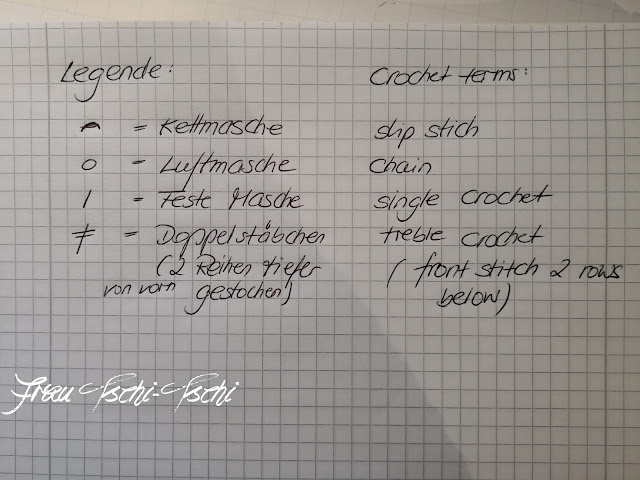 Legende: Crochet terms:
⌢ = Kettmasche slip stich
o = Luftmasche chain
| = Feste Masche single crochet
ǂ = Doppelstäbchen treble crochet
(2 Reihen tiefer ( front stitch 2 rows
von vorn gestochen) below)
Frau Tschi-Tschi